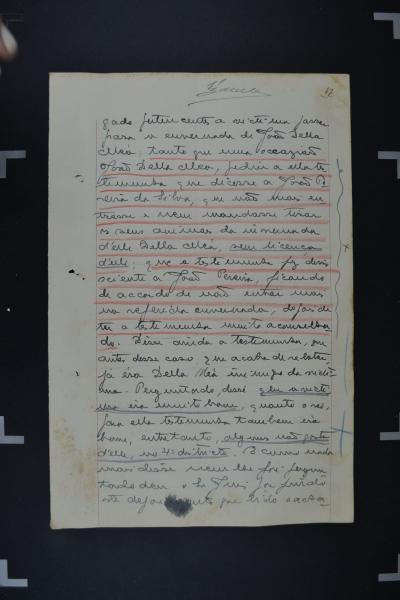 12
gado pertencente a victima passar
para a envernada de João Della
Méa, tanto que uma occasião
João Della Méa, pediu a ella tes
temunha que dicesse a João Pe
reira da Silva, que não mais en
trasse e nem mandasse tirar
os seus animaes da invernada
d'elle Della Méa, sem licença
d'elle; que a testemunha fez deris
sciente a João Pereira, ficando
de accordo de não entrar mais
na referida envernada, depois de
ter a testemunha muito aconselha
do. Disse ainda a testemunha, que
antes desse caso, que acaba de relatar,
já era Della Méa inimigo da victi
ma. Perguntado, disse que a victi
ma era muito bom, quanto o réo,
para ella testemunha tambem era
bom, entretanto, alguns não gosta
d'elle, no 4º districto. E como nada
mais disse nem lhe foi pergun
tado deu o Sr. Juiz por findo
este depoimento que lido e acha